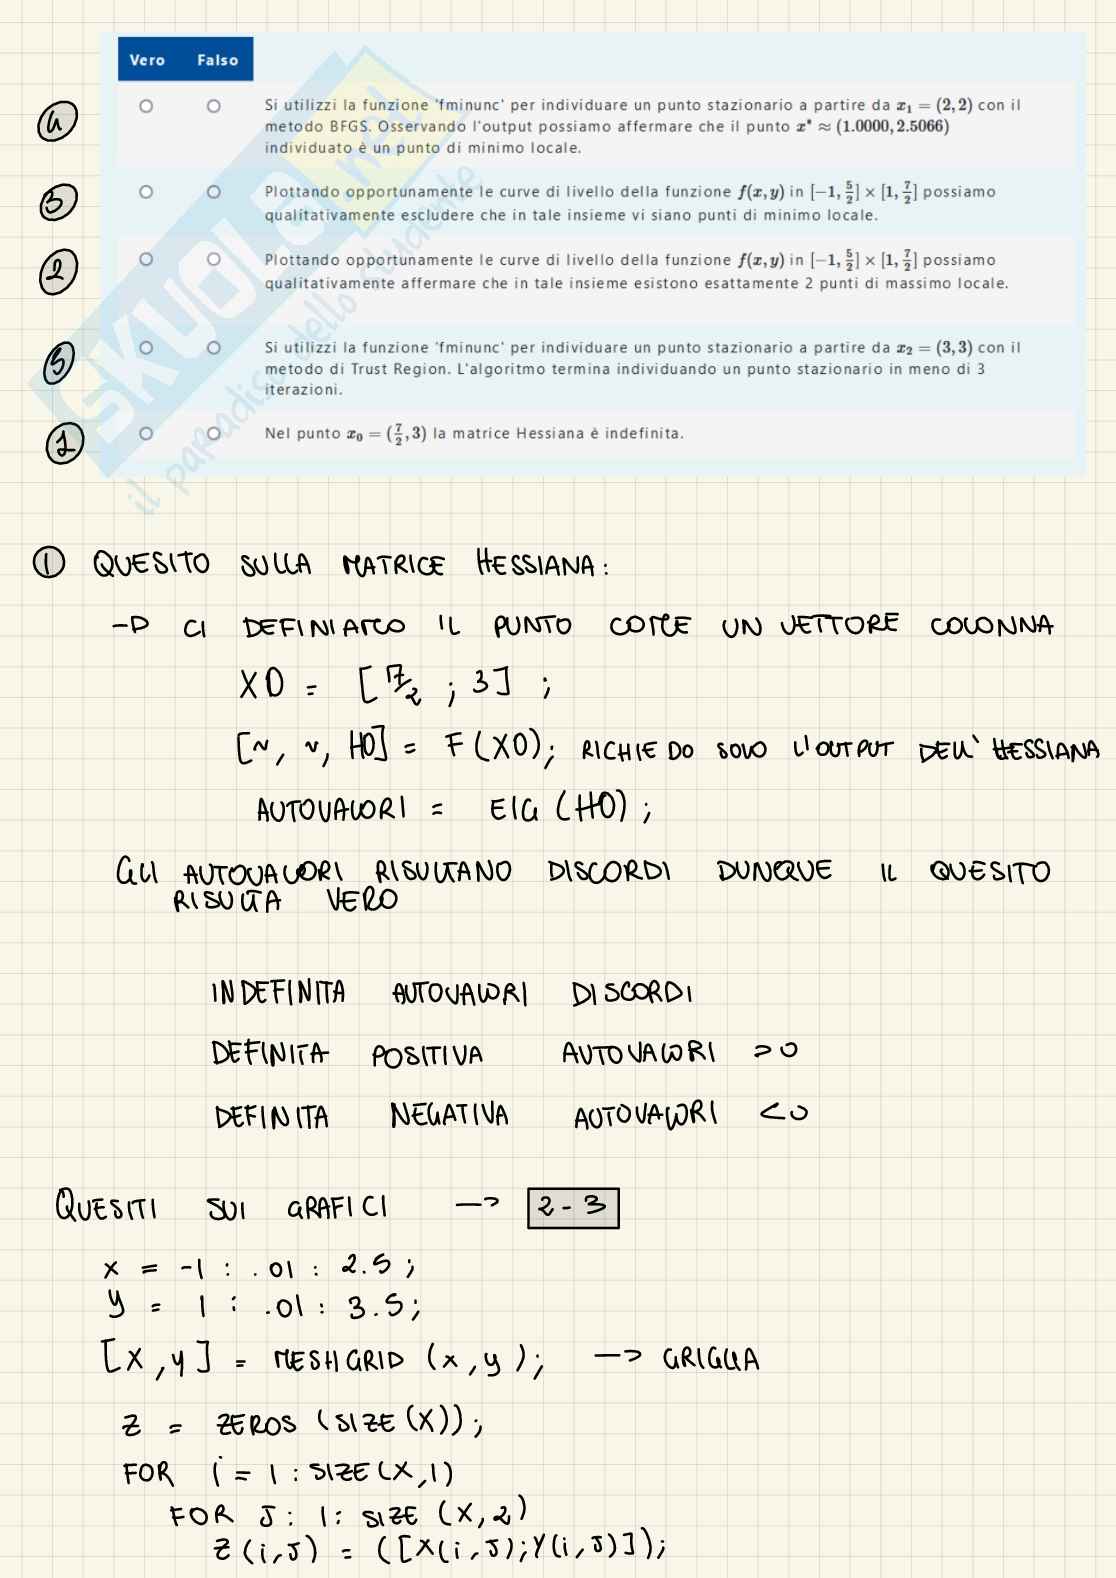 Vero Falso
④ Si utilizzi la funzione 'fminunc' per individuare un punto stazionario a partire da x₁ = (2, 2) con il
metodo BFGS. Osservando l'output possiamo affermare che il punto x* ≈ (1.0000, 2.5066)
individuato è un punto di minimo locale.
③ Plottando opportunamente le curve di livello della funzione f(x, y) in [−1, 5/2] × [1, 7/2] possiamo
qualitativamente escludere che in tale insieme vi siano punti di minimo locale.
② Plottando opportunamente le curve di livello della funzione f(x, y) in [−1, 5/2] × [1, 7/2] possiamo
qualitativamente affermare che in tale insieme esistono esattamente 2 punti di massimo locale.
⑤ Si utilizzi la funzione 'fminunc' per individuare un punto stazionario a partire da x₂ = (3, 3) con il
metodo di Trust Region. L'algoritmo termina individuando un punto stazionario in meno di 3
iterazioni.
① Nel punto x₀ = (7/2, 3) la matrice Hessiana è indefinita.
SKUOLA.net
il paradiso dello studente
① QUESITO SULLA MATRICE HESSIANA:
-D CI DEFINIAMO IL PUNTO COME UN VETTORE COLONNA
X0 = [7/2 ; 3] ;
[~, ~, H0] = F(X0); RICHIEDO SOLO L'OUTPUT DELL'HESSIANA
AUTOVALORI = EIG (H0);
GLI AUTOVALORI RISULTANO DISCORDI DUNQUE IL QUESITO
RISULTA VERO
INDEFINITA AUTOVALORI DISCORDI
DEFINITA POSITIVA AUTOVALORI >0
DEFINITA NEGATIVA AUTOVALORI <0
QUESITI SUI GRAFICI —> 2 - 3
x = -1 : .01 : 2.5 ;
y = 1 : .01 : 3.5;
[X,Y] = MESHGRID (x,y); —> GRIGLIA
Z = ZEROS (SIZE(X));
FOR i = 1 : SIZE(X,1)
FOR J: 1: SIZE (X,2)
Z(i,J) = ([X(i,J);Y(i,J)]);